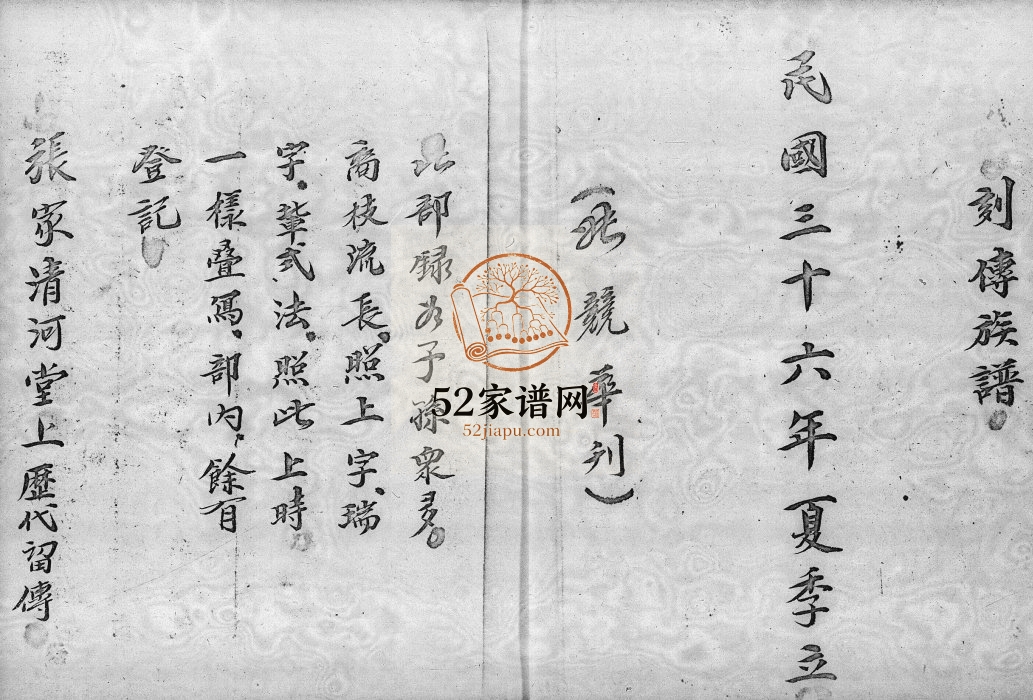 刻傳族譜。
民國三十六年夏季立
競華刊)
此部録為子孫衆多。
高枝流長。照上字、瑞
字。輩式法。照此上時
一樣叠寫、部内,餘有
登記
張家清河堂上歷代留傳。
52家谱网
52jiapu.com